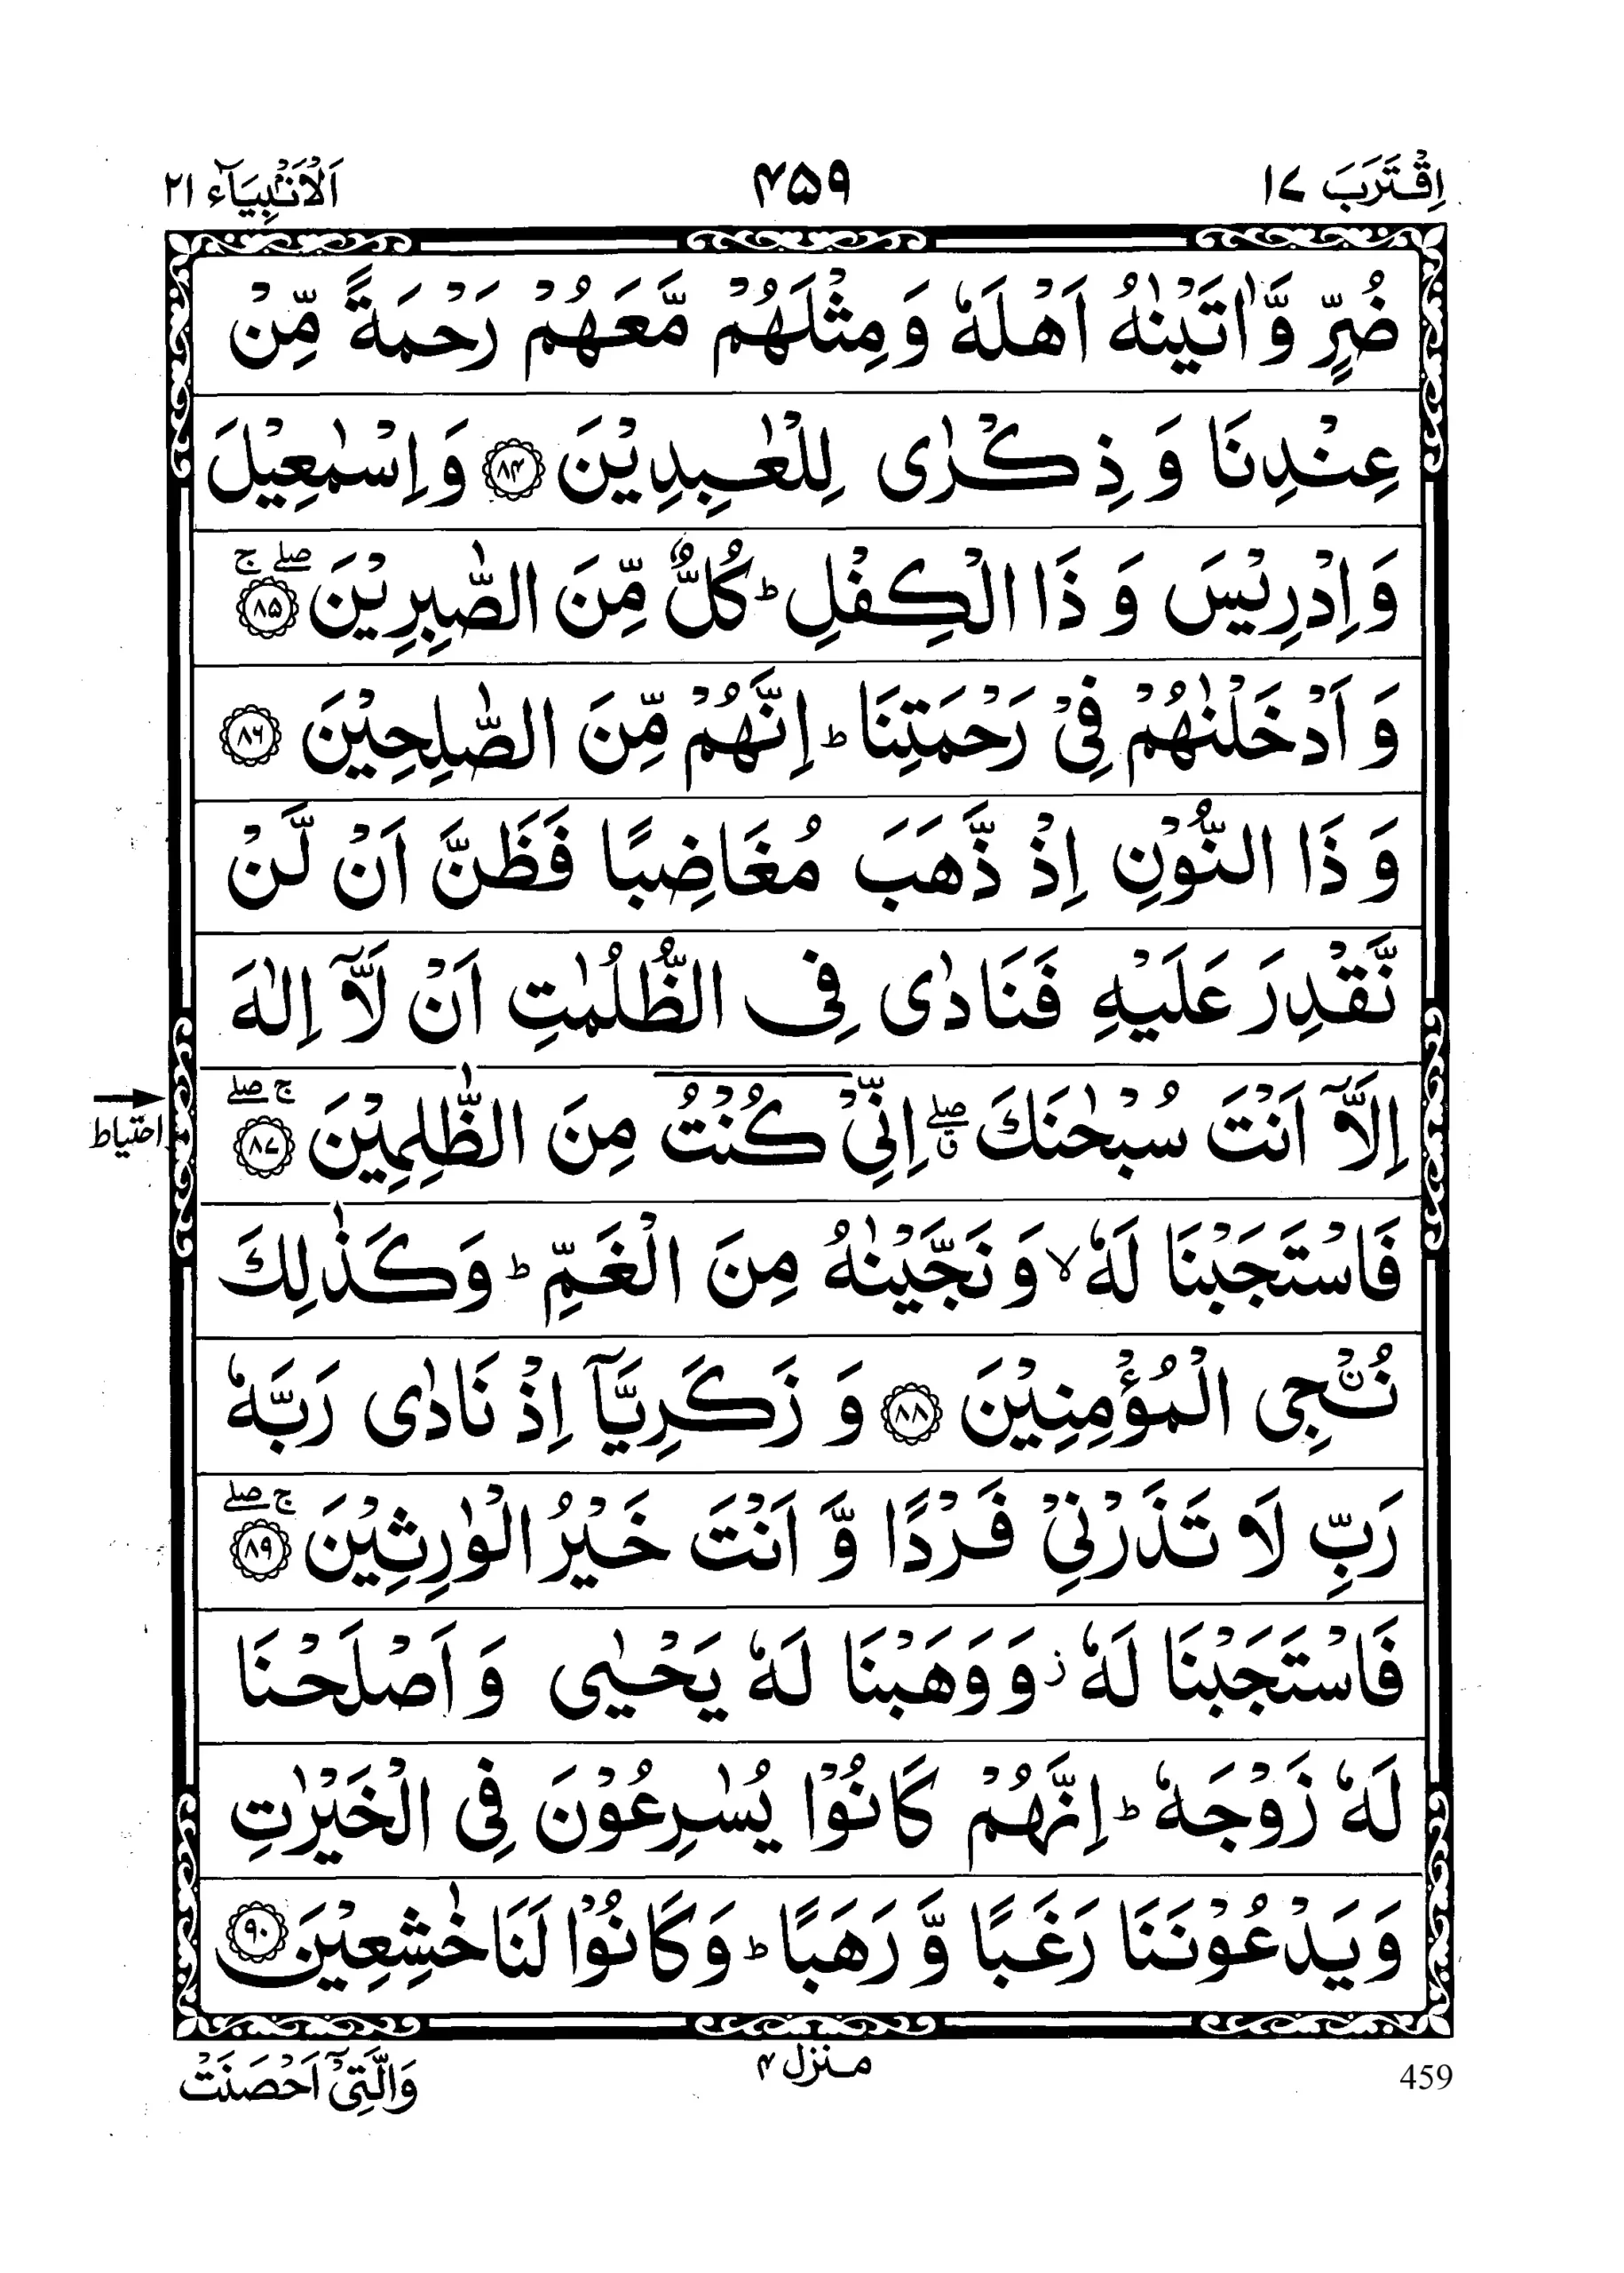 اِقْتَرَبَ ١٧
۴۵۹
اَلْاَنْۢبِيَآء ٢١
ضُرٍّ وَّاٰتَيْنٰهُ اَهْلَهٗ وَمِثْلَهُمْ مَّعَهُمْ رَحْمَةً مِّنْ
عِنْدِنَا وَذِكْرٰى لِلْعٰبِدِيْنَ ﴿۸۴﴾ وَاِسْمٰعِيْلَ
وَاِدْرِيْسَ وَذَا الْكِفْلِ ؕ كُلٌّ مِّنَ الصّٰبِرِيْنَ ۖۚ ﴿۸۵﴾
وَاَدْخَلْنٰهُمْ فِيْ رَحْمَتِنَا ؕ اِنَّهُمْ مِّنَ الصّٰلِحِيْنَ ﴿۸۶﴾
وَذَا النُّوْنِ اِذْ ذَّهَبَ مُغَاضِبًا فَظَنَّ اَنْ لَّنْ
نَّقْدِرَ عَلَيْهِ فَنَادٰى فِى الظُّلُمٰتِ اَنْ لَّاۤ اِلٰهَ
اِلَّاۤ اَنْتَ سُبْحٰنَكَ ۖۗ اِنِّيْ كُنْتُ مِنَ الظّٰلِمِيْنَ ۚۖ ﴿۸۷﴾
احتیاط
فَاسْتَجَبْنَا لَهٗ ۙ وَنَجَّيْنٰهُ مِنَ الْغَمِّ ؕ وَكَذٰلِكَ
نُـْۨجِى الْمُؤْمِنِيْنَ ﴿۸۸﴾ وَزَكَرِيَّاۤ اِذْ نَادٰى رَبَّهٗ
رَبِّ لَا تَذَرْنِيْ فَرْدًا وَّاَنْتَ خَيْرُ الْوٰرِثِيْنَ ۚۖ ﴿۸۹﴾
فَاسْتَجَبْنَا لَهٗ ز وَوَهَبْنَا لَهٗ يَحْيٰى وَاَصْلَحْنَا
لَهٗ زَوْجَهٗ ؕ اِنَّهُمْ كَانُوْا يُسٰرِعُوْنَ فِى الْخَيْرٰتِ
وَيَدْعُوْنَنَا رَغَبًا وَّرَهَبًا ؕ وَكَانُوْا لَنَا خٰشِعِيْنَ ﴿۹۰﴾
459
منزل ۴
وَالَّتِيْۤ اَحْصَنَتْ